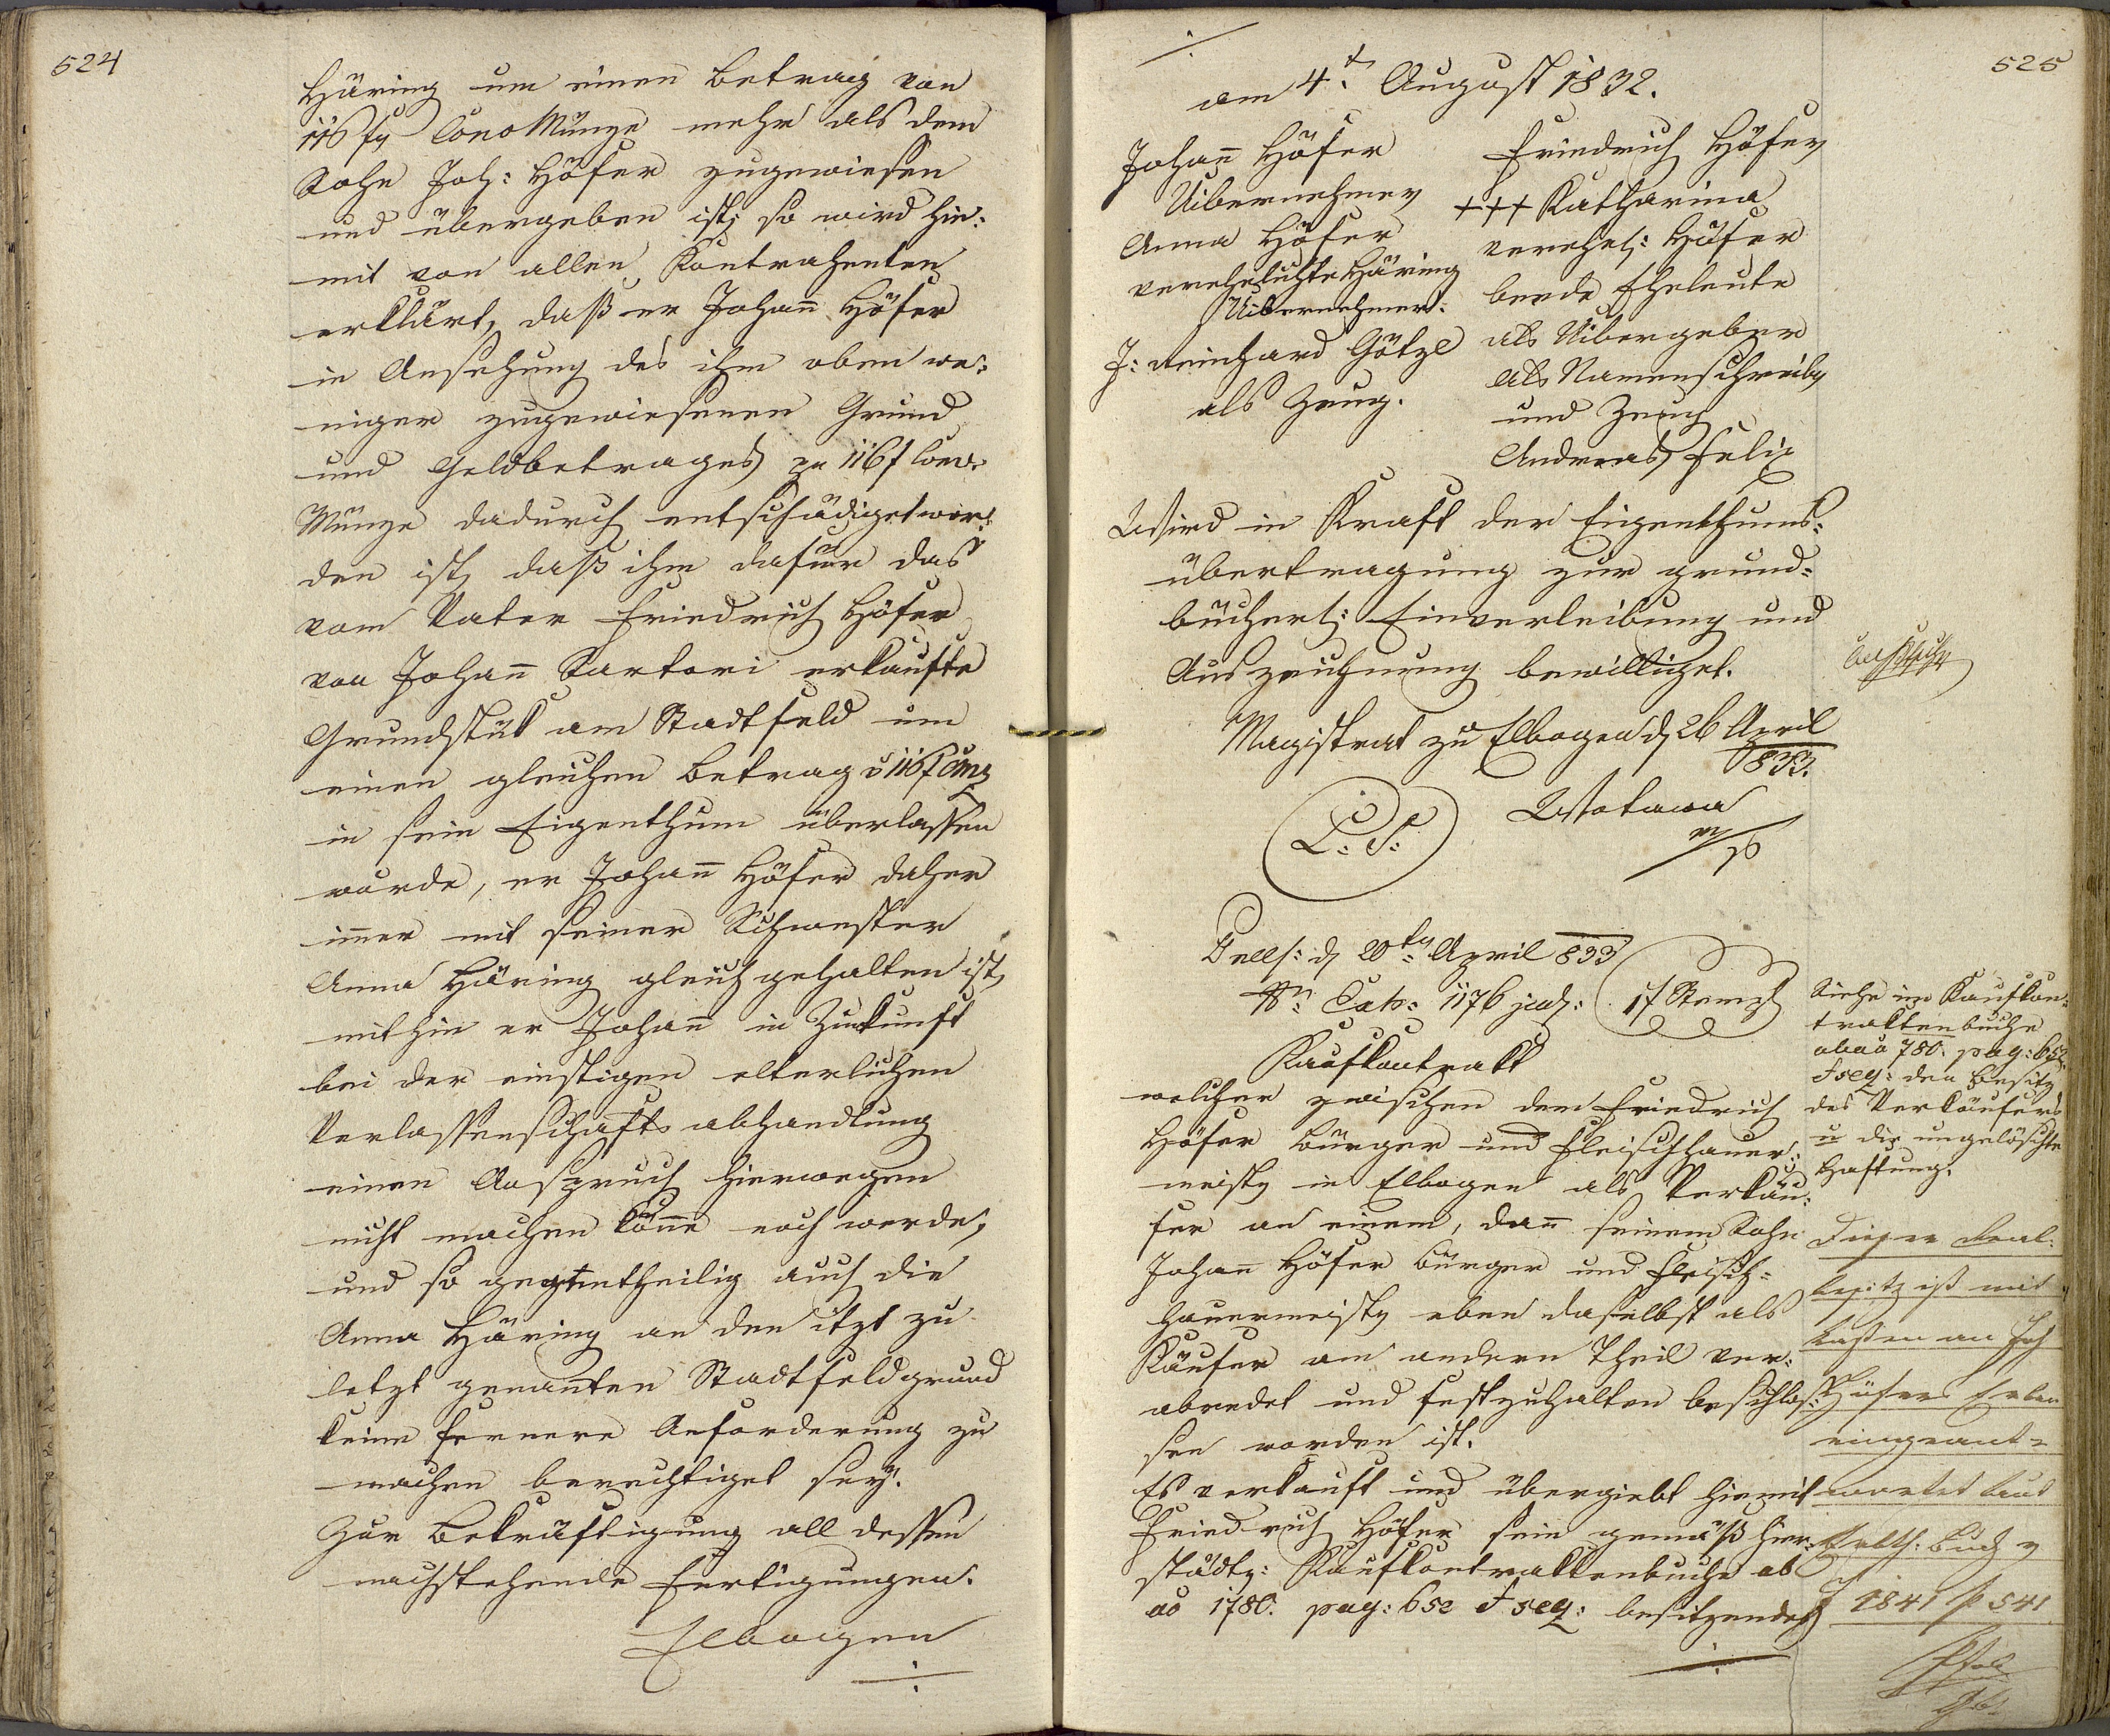 524
Häring um einen Betrag von
116 fl Conv Münze mehr als dem
Sohn Joh: Höfer zugewiesen
und übergeben ist; so wird hie:
mit von allen Kontrahenten
erklärt, daß er Johañ Höfer
in Ansehung des ihm oben we:
niger zugewiesenen Grund
und Geldbetrages zu 116 f Conv:
Münze dadurch entschädiget wor:
den ist, daß ihm dafür das
vom Vater Friedrich Höfer
von Johañ Sartori erkaufte
Grundstük am Stadtfeld um
einen gleichen Betrag á 116 f CMz
in sein Eigenthum überlassen
wurde, er Johañ Höfer daher
im̄er mit seiner Schwester
Anna Häring gleich gehalten ist,
mithin er Johañ in Zukunft
bei der einstigen elterlichen
Verlassenschafts abhandlung
einen Anspruch hierwegen
nicht machen köñe noch werde,
und so gegentheilig auch die
Anna Häring an den itzt zu
letzt genañten Stadtfeldgrund
keine fernere Anforderung zu
machen berechtiget sey.
Zur Bekräftigung all dessen
nachstehende Fertigungen.
Elbogen
./.
./.
525
am 4t. August 1832.
Johañ Höfer
Uibernehmer
Anna Höfer
verehelichte Häring
Uibernehmer:
J: Reinhard Götzl
als Zeug.
Friedrich Höfer
+++ Katharina
verehel: Höfer
beede Eheleute
als Uibergeber
als Namenschreiber
und Zeug
Andreas Felix
Wird in Kraft der Eigenthums:
übertragung zur grund=
bücherl: Einverleibung und
Auszeichnung bewilliget.
Magistrat zu Elbogen d 26 April
833.
L: S:
Wotawa
m/p
Präs: d 20ten April 833
Nr: Exh: 1176 jud:
1 f Stempl
Kaufkontrakt
welcher zwischen dem Friedrich
Höfer Bürger und Fleischhauer:
meister in Elbogen als Verkäu:
fer an einem, dañ seinem Sohn
Johañ Höfer Bürger und Fleisch=
hauermeister eben daselbst als
Käufer am andern Theil ver:
abredet und festzuhalten beschlos:
sen worden ist.
Es verkauft und übergiebt hiemit
Friedrich Höfer sein gemäß hier:
städt: Kaufkontraktenbuche ab
ao 1780. pag: 652 & seq: besitzendes
./.
Siehe im Kaufkon:
traktenbuche
ab ao 780. pag: 652
& seq: den Besitz
des Verkäufers
u die ungelöschte
Haftung.
Dieser Real:
besitz ist mit
Lasten an Joh
Höfers Erben
eingeant=
wortet laut
Buch
J 1841 p 541